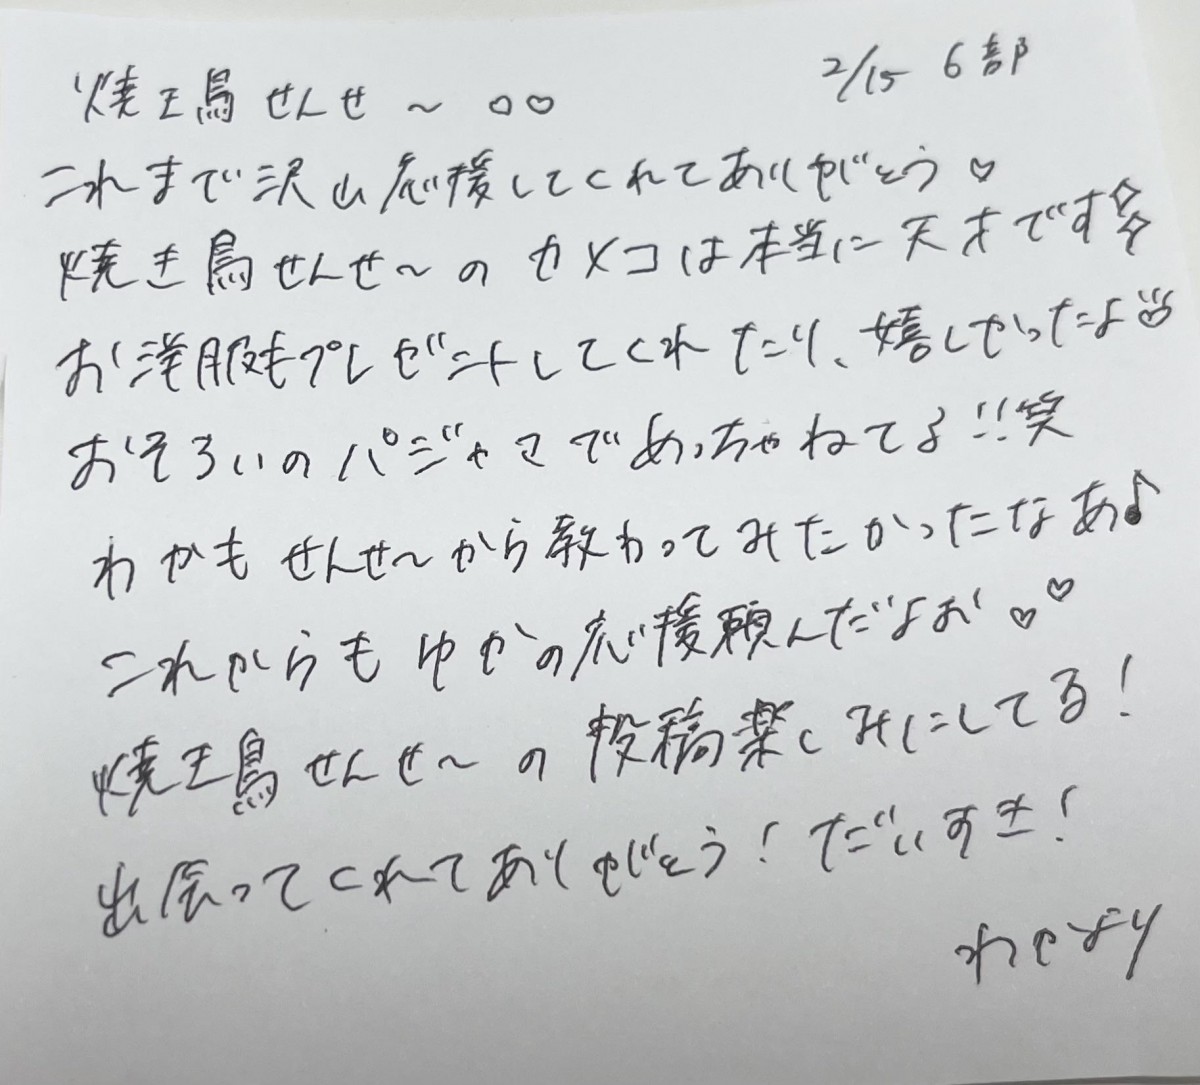 2/15 6部
焼き鳥せんせ〜♡♡
これまで沢山応援してくれてありがとう♡
焼き鳥せんせ〜のカメコは本当に天才です
お洋服もプレゼントしてくれたり、嬉しかったよ
おそろいのパジャマでめっちゃねてる!!笑
わかもせんせ〜から教わってみたかったなあ♪
これからもゆかの応援頼んだよお♡♡
焼き鳥せんせ〜の投稿楽しみにしてる!
出会ってくれてありがとう!だいすき!
わかより